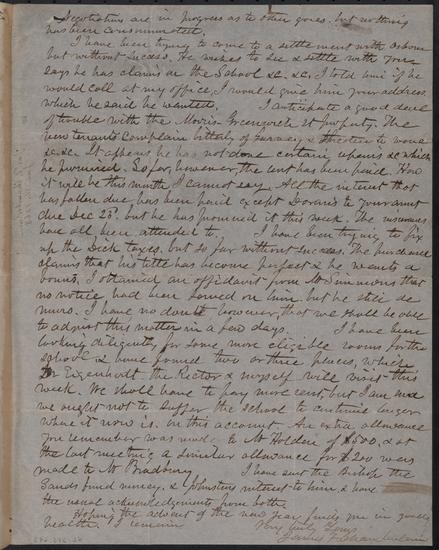 Negotiations are in progress as to other gores, but nothing
has been consummated.
I have been trying to come to a settlement with Osborn
but without success. He wishes to see & settle with you &
says he has claims on the School &c. &c. I told him if he
would call at my office, I would give him your address,
which he said he wanted. I anticipate a good deal
of trouble with the Morris Greenwich St property. The
new tenants complain bitterly of & threaten to
&c. &c. It appears he has not done certain repairs &c which
he promised. So far, however, the rent has been paid. How
it will be this month I cannot say. All the interest that
has fallen due has been paid except Doran's to your aunt
due Dec 25th, but he has promised it this week. The insurances
have all been attended to. I have been trying to fix
up the Dick taxes, but so far without success. The purchaser
claims that his title has become perfect & he wants a
bonus. I obtained an affidavit from Mr Simmons that
no notice had been served on him but he still de
murs. I have no doubt however, that we shall be able
to adjust this matter in a few days. I have been
looking diligently for some more eligible rooms for the
school & have found two or three places, which
Dr Eigenbrodt the Rector & myself will visit this
week. We shall have to pay more rent, but I am sure
we ought not to suffer the school to continue longer
where it now is on this account. An extra allowance
you remember was made to Mr Holden of $500, & at
the last meeting a similar allowance for $200 was
made to Mr Bradbury I have sent the Bishop the
Sands fund money, & Johnston's interest to him & have
the usual acknowledgements from both.
Hoping the advent of the new year finds you in good
health I remain
Very truly Yours